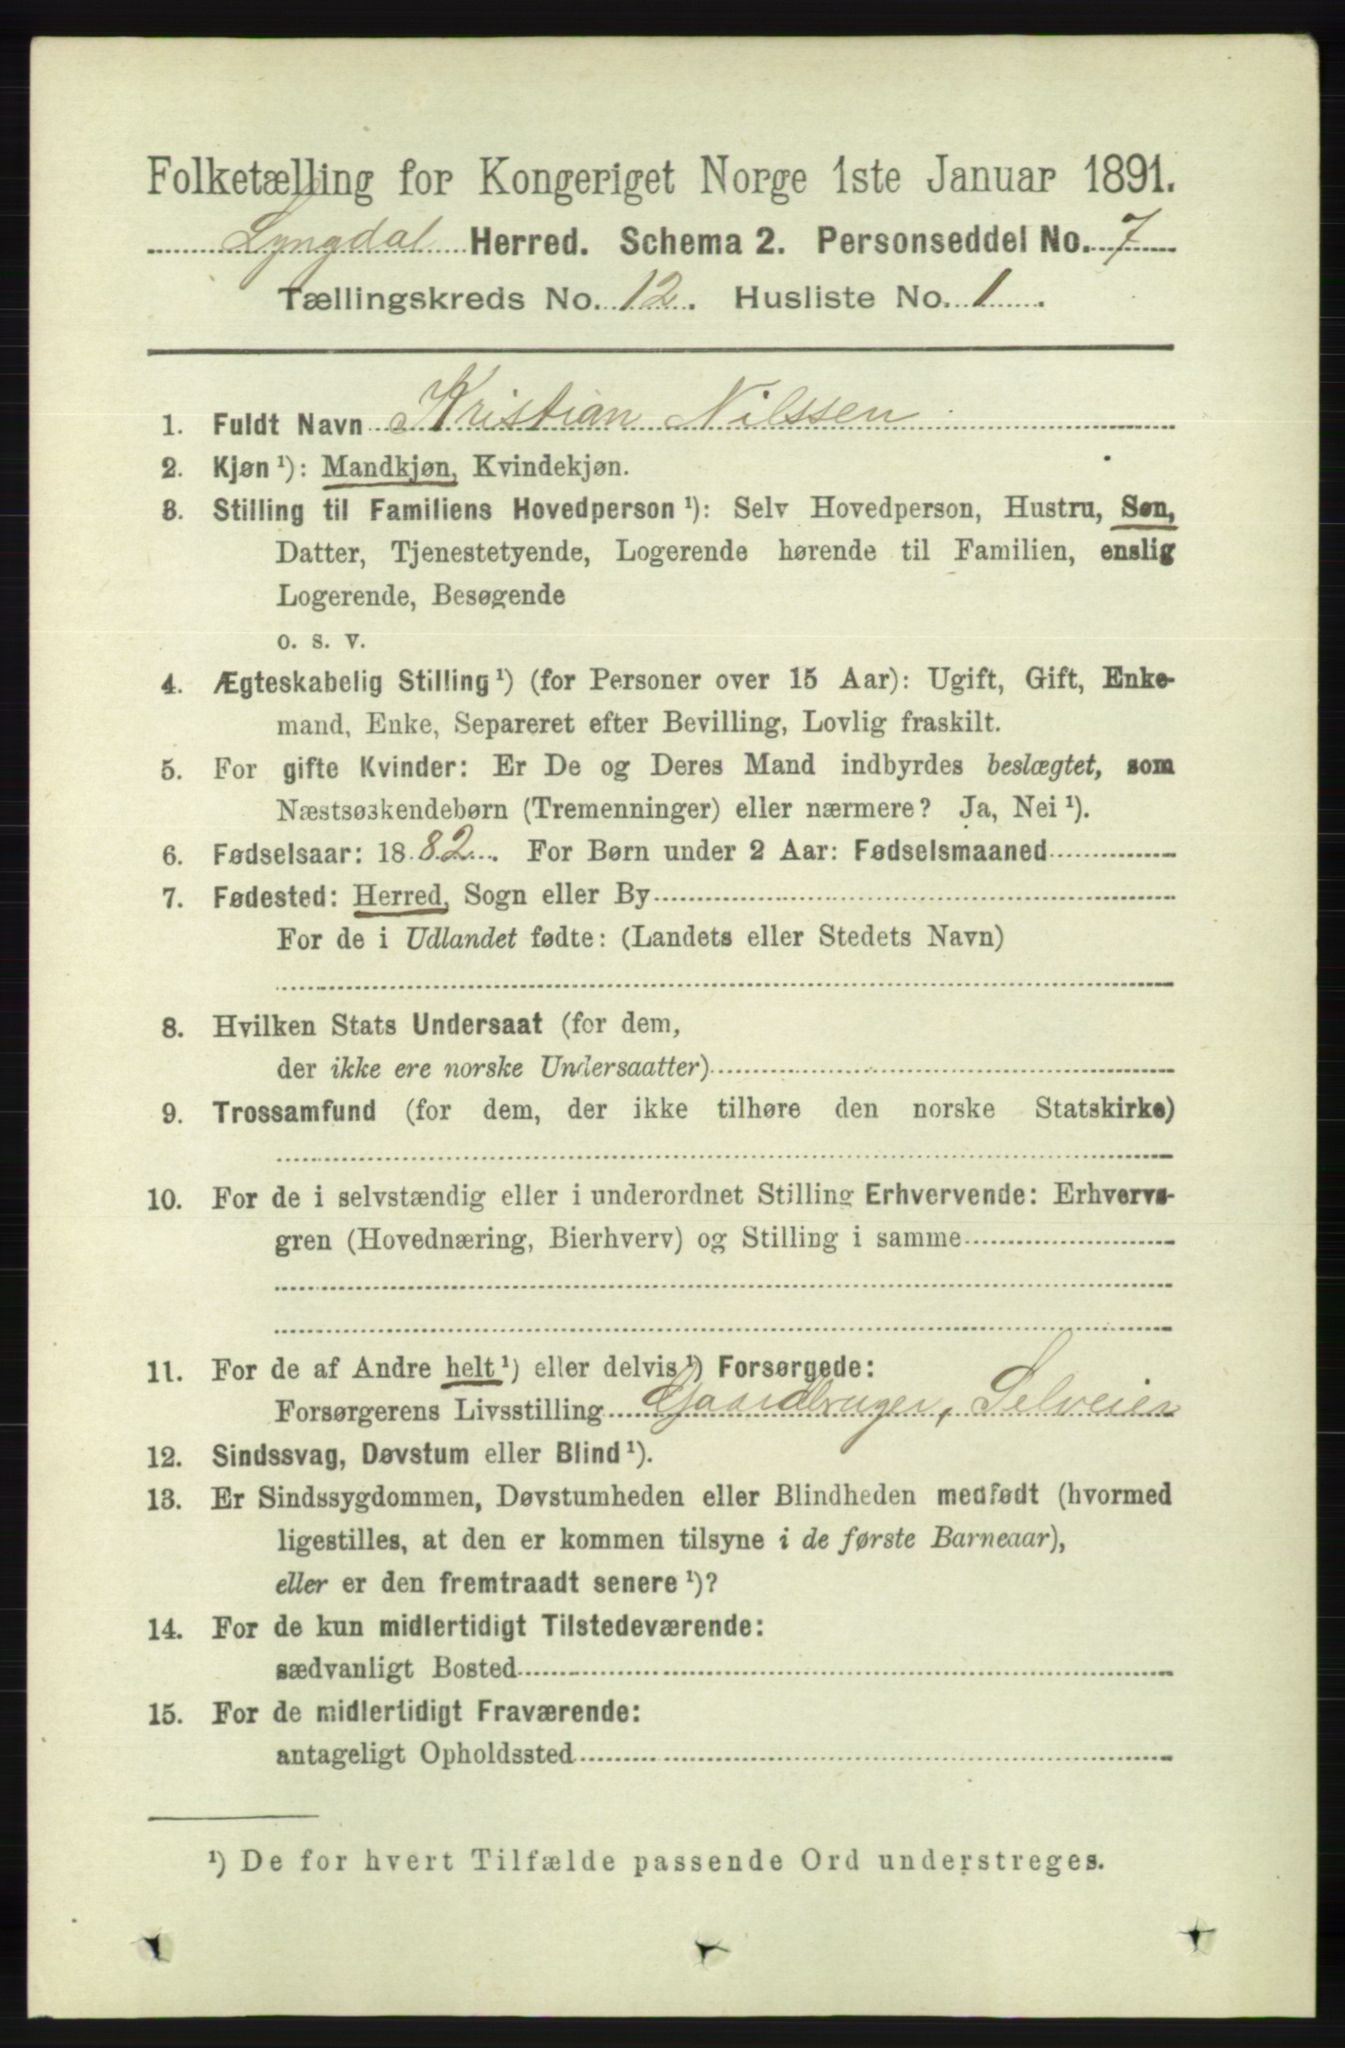 Folketælling for Kongeriget Norge 1ste Januar 1891.
Lyngdal Herred. Schema 2. Personseddel No. 7
Tællingskreds No. 12. Husliste No. 1.
1. Fuldt Navn Kristian Nilssen
2. Kjøn ¹): Mandkjøn, Kvindekjøn.
3. Stilling til Familiens Hovedperson ¹): Selv Hovedperson, Hustru, Søn,
Datter, Tjenestetyende, Logerende hørende til Familien, enslig
Logerende, Besøgende
o. s. v.
4. Ægteskabelig Stilling ¹) (for Personer over 15 Aar): Ugift, Gift, Enke-
mand, Enke, Separeret efter Bevilling, Lovlig fraskilt.
5. For gifte Kvinder: Er De og Deres Mand indbyrdes beslægtet, som
Næstsøskendebørn (Tremenninger) eller nærmere? Ja, Nei ¹).
6. Fødselsaar: 1882. For Børn under 2 Aar: Fødselsmaaned
7. Fødested: Herred, Sogn eller By
For de i Udlandet fødte: (Landets eller Stedets Navn)
8. Hvilken Stats Undersaat (for dem,
der ikke ere norske Undersaatter)
9. Trossamfund (for dem, der ikke tilhøre den norske Statskirke)
10. For de i selvstændig eller i underordnet Stilling Erhvervende: Erhvervs-
gren (Hovednæring, Bierhverv) og Stilling i samme
11. For de af Andre helt ¹) eller delvis ¹) Forsørgede:
Forsørgerens Livsstilling Gaardbruger, Selveier
12. Sindssvag, Døvstum eller Blind ¹).
13. Er Sindssygdommen, Døvstumheden eller Blindheden medfødt (hvormed
ligestilles, at den er kommen tilsyne i de første Barneaar),
eller er den fremtraadt senere ¹)?
14. For de kun midlertidigt Tilstedeværende:
sædvanligt Bosted
15. For de midlertidigt Fraværende:
antageligt Opholdssted
¹) De for hvert Tilfælde passende Ord understreges.